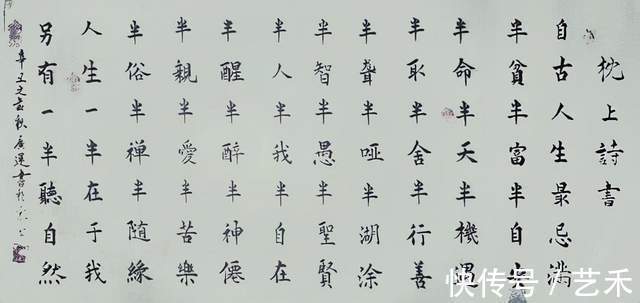 枕上詩書
自古人生最忌滿
半貧半富半自安
半命半天半機遇
半取半舍半行善
半聾半啞半湖涂
半智半愚半聖賢
半人半我半自在
半醒半醉半神僊
半親半愛半苦樂
半俗半禪半隨緣
人生一半在于我
另有一半聽自然
辛丑之秋書於
快传号 / 艺禾